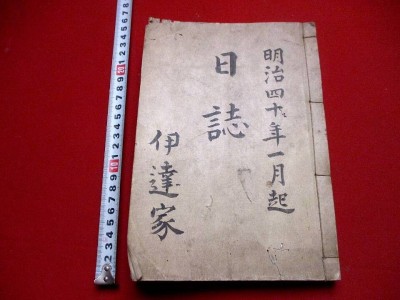 明治四十年一月起
日誌
伊達家